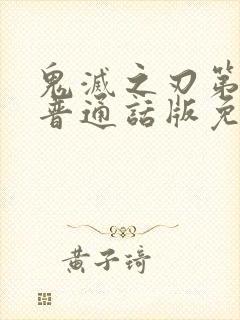 鬼滅之刃第
普通話版免
黄子琦